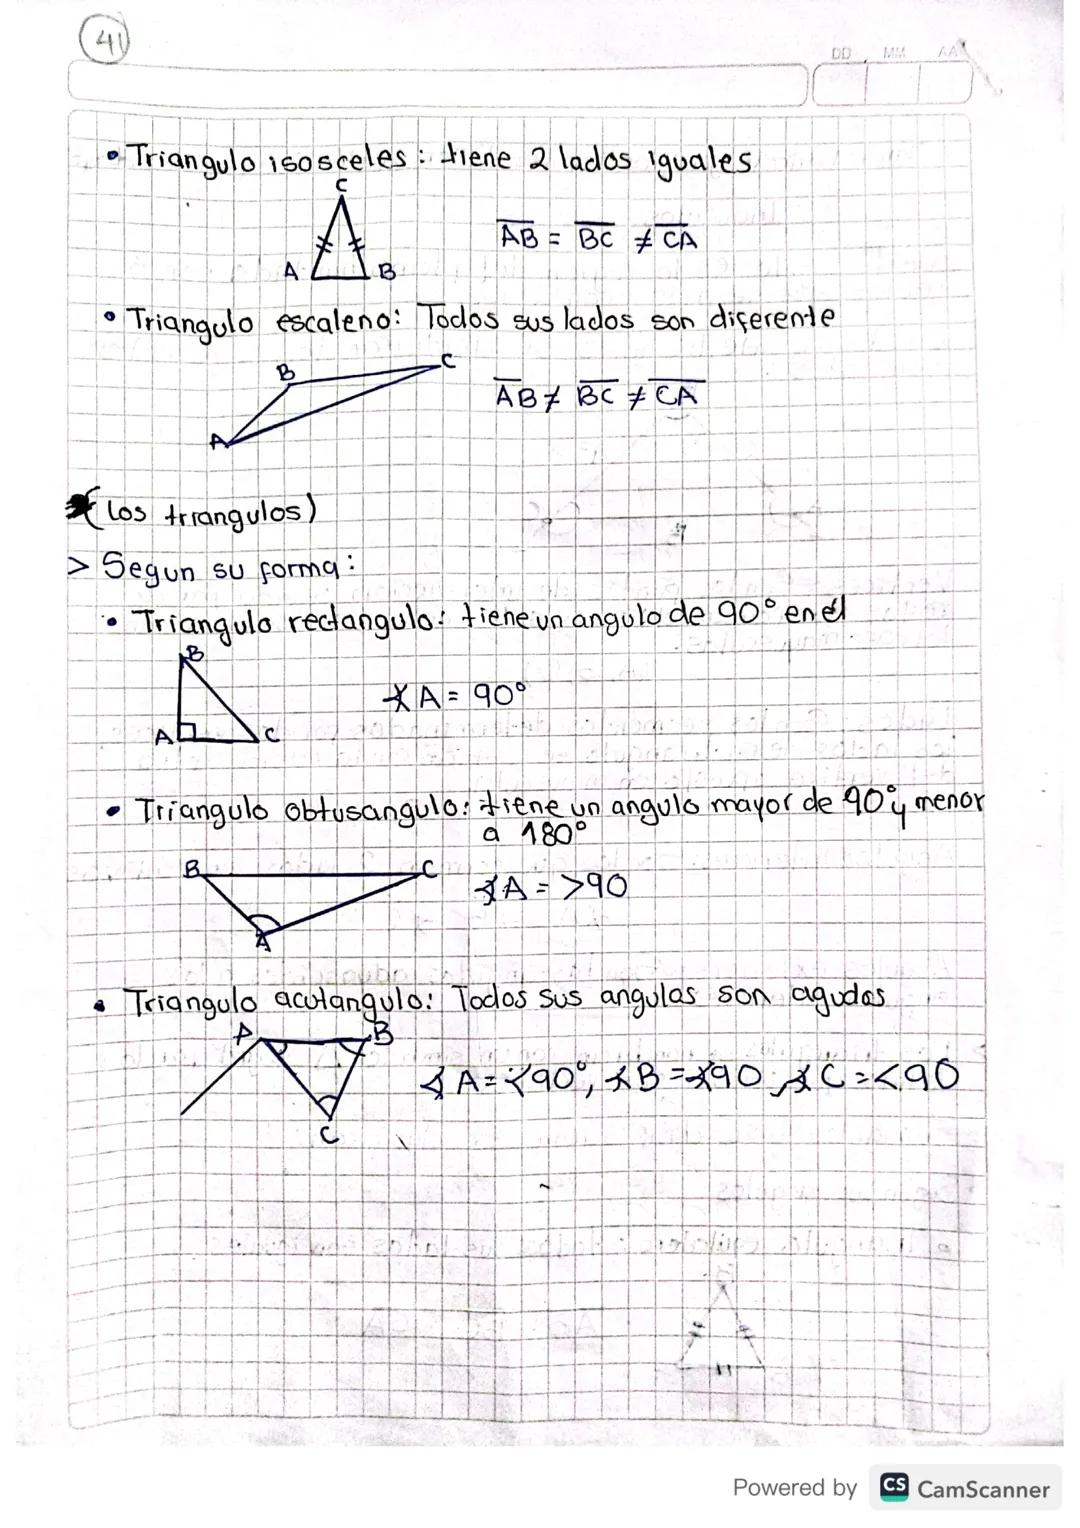 41
DD MM AA
• Triangulo isosceles: tiene 2 lados iguales
C
A B
AB = BC ≠ CA
• Triangulo escaleno: Todos sus lados son diferente
B C
A
AB ≠ BC ≠ CA
(los triangulos)
> Segun su forma:
• Triangulo rectangulo: tiene un angulo de 90° en él
B
A C
∡A = 90°
• Triangulo obtusangulo: tiene un angulo mayor de 90° y menor
a 180°
B C
A
∡A = >90
• Triangulo acutangulo: Todos sus angulos son agudos
A B
C
∡A = <90°, ∡B = <90, ∡C = <90
Powered by CS CamScanner